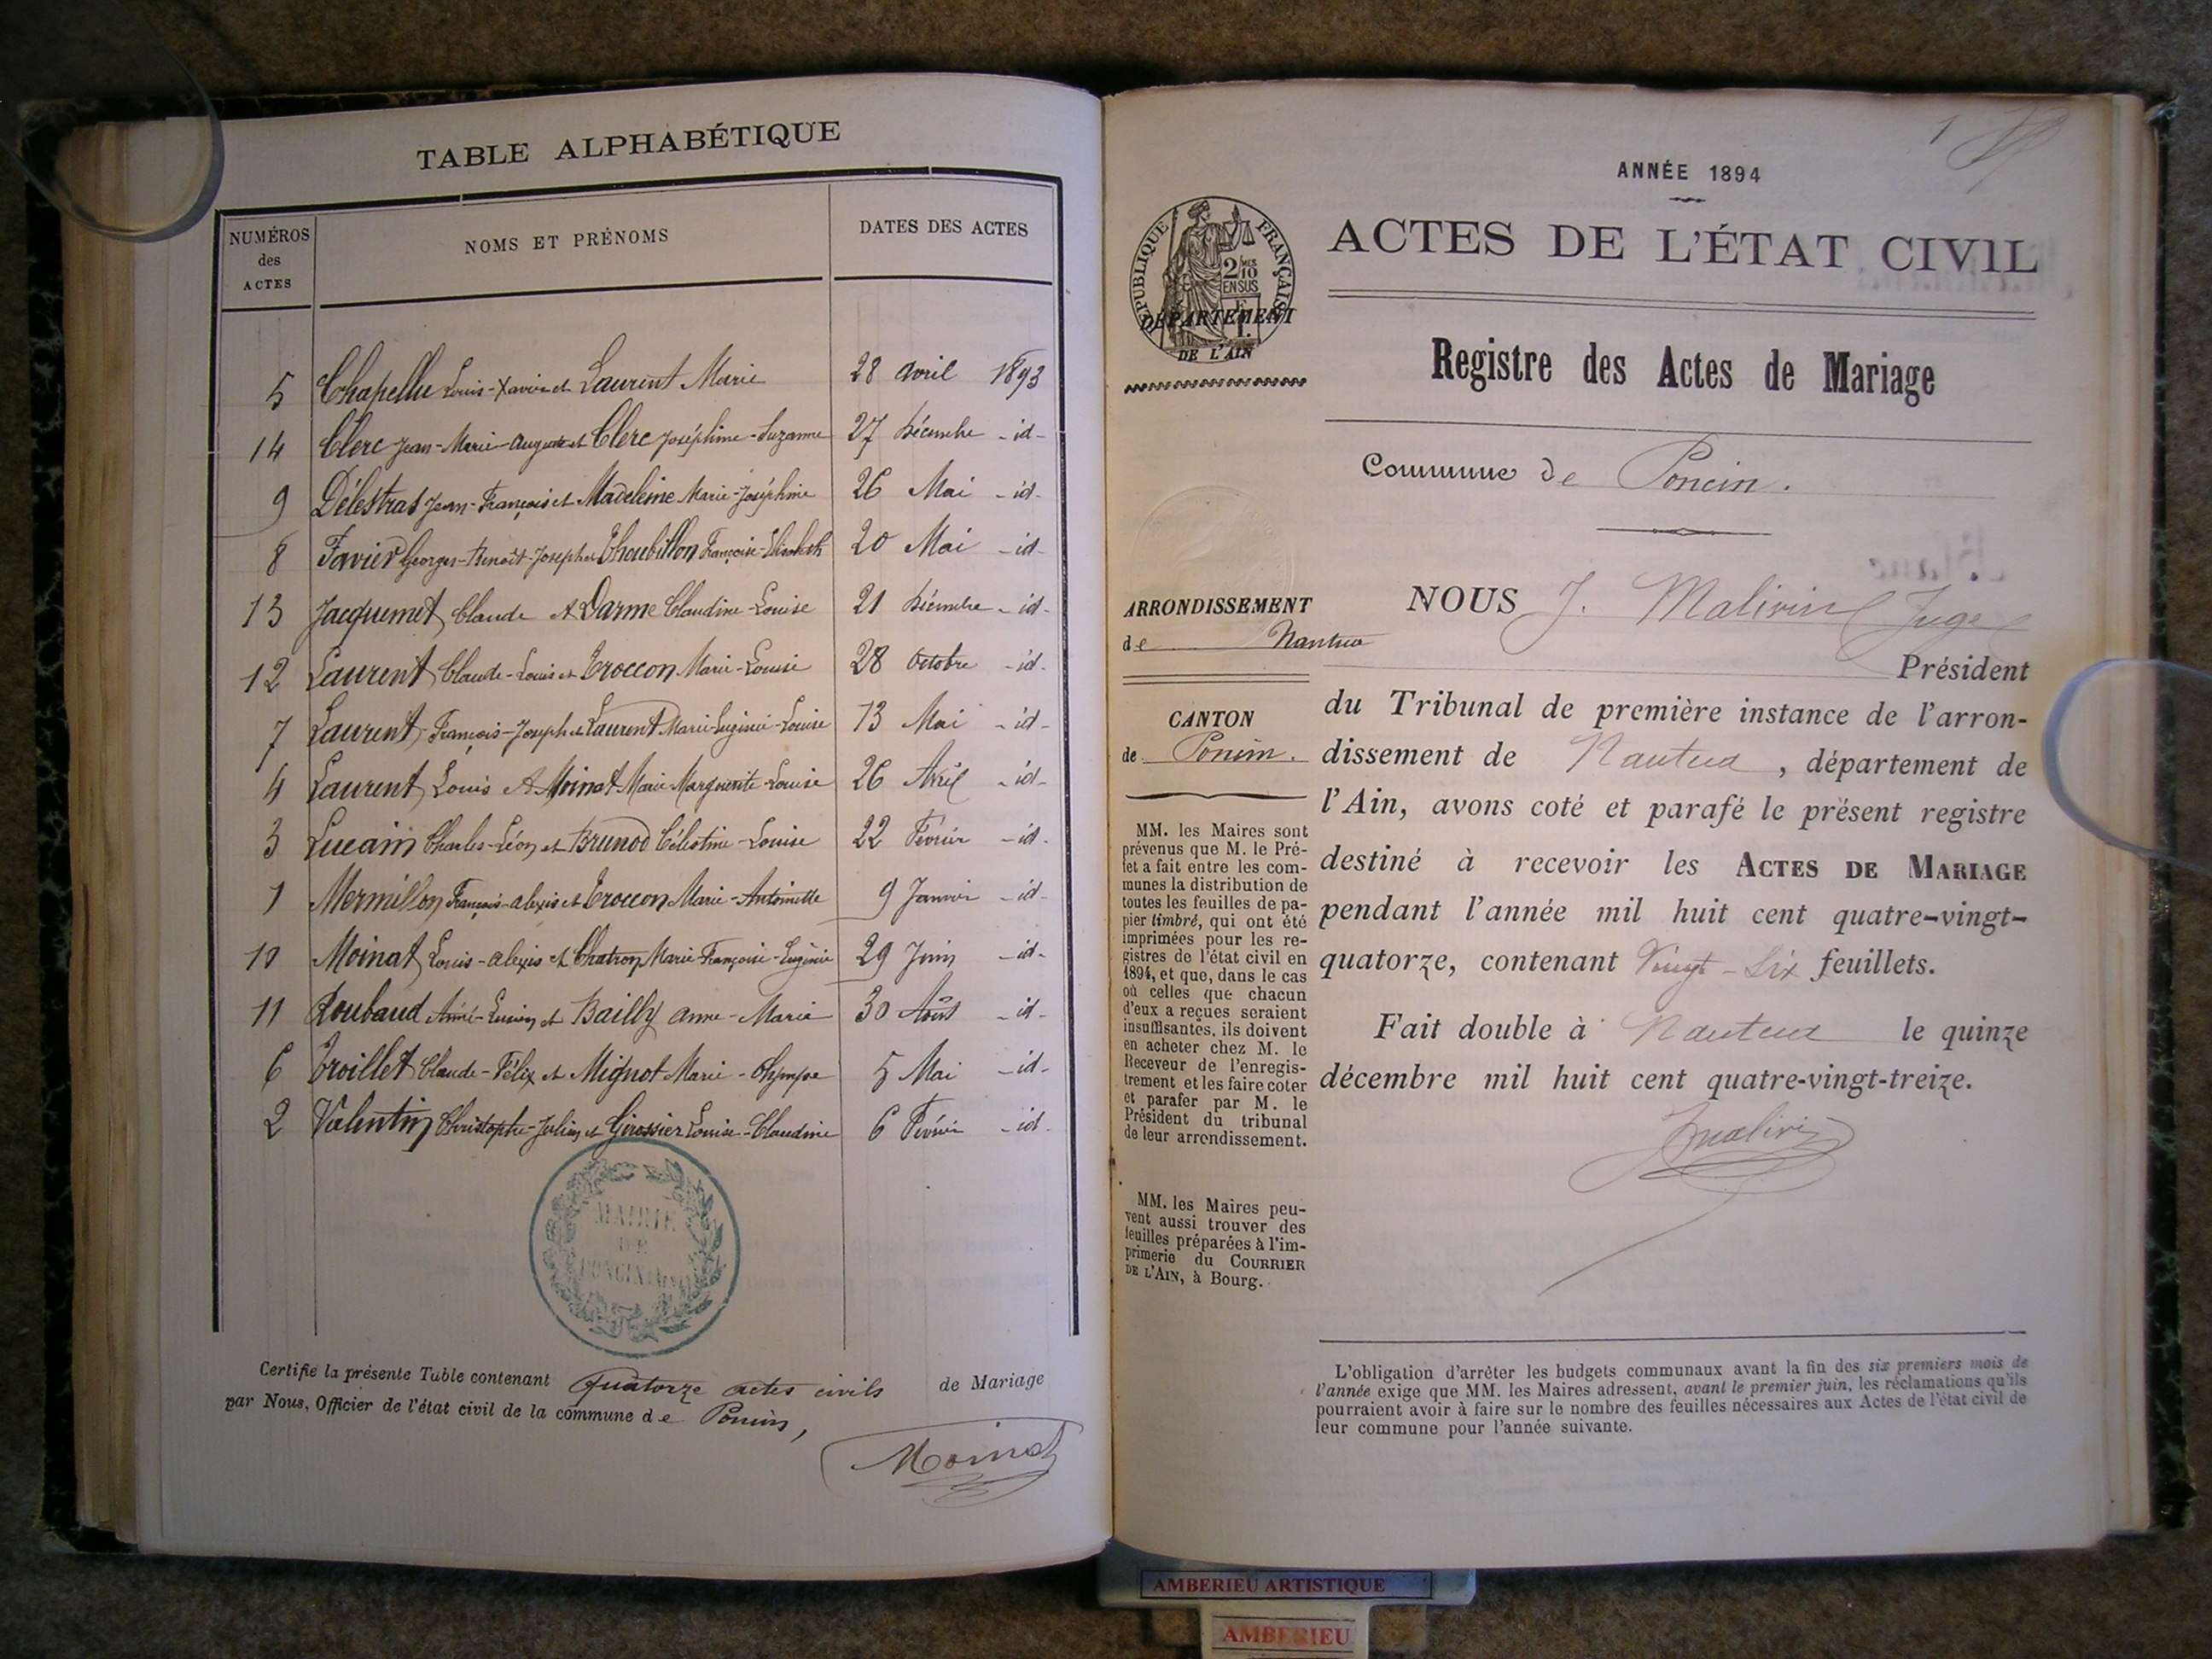 TABLE ALPHABÉTIQUE
NUMÉROS des ACTES NOMS ET PRÉNOMS DATES DES ACTES
5 Chapellu Louis-Xavier et Laurent Marie 28 avril 1893
14 Clerc Jean-Marie-auguste et Clerc Joséphine-Suzanne 27 Décembre -id-
9 Délestras Jean-François et Madeleine Marie-Joséphine 26 Mai -id-
8 Favier Georges-Benoît-Joseph et Thoubillon Françoise-Elisabeth 20 Mai -id-
13 Jacquemet Claude et Darme Claudine-Louise 21 Décembre -id-
12 Laurent Claude-Louis et Troccon Marie-Louise 28 Octobre -id-
7 Laurent François-Joseph et Laurent Marie-Eugénie-Louise 13 Mai -id-
4 Laurent Louis et Moinat Marie Marguerite-Louise 26 Avril -id-
3 Lucain Charles-Léon et Brunod Célestine-Louise 22 Février -id-
1 Mermillon François-alexis et Troccon Marie-Antoinette 9 Janvier -id-
10 Moinat Louis-alexis et Chatron Marie-Françoise-Eugénie 29 Juin -id-
11 Roubaud Aimé-Lucien et Bailly anne-Marie 30 Août -id-
6 Troillet Claude-Félix et Mignot Marie-Olympe 5 Mai -id-
2 Valentin Christophe-Julien et Girossier Louise-Claudine 6 Février -id-
MAIRIE
DE
PONCIN (AIN)
Certifie la présente Table contenant Quatorze actes civils de Mariage
par Nous, Officier de l'état civil de la commune de Poncin,
Moinat
1
ANNÉE 1894
ACTES DE L'ÉTAT CIVIL
RÉPUBLIQUE FRANÇAISE
2/10 MES
EN SUS
DÉPARTEMENT
DE L'AIN
Registre des Actes de Mariage
Commune de Poncin.
ARRONDISSEMENT
de Nantua
CANTON
de Poncin.
MM. les Maires sont
prévenus que M. le Pré-
fet a fait entre les com-
munes la distribution de
toutes les feuilles de pa-
pier timbré, qui ont été
imprimées pour les re-
gistres de l'état civil en
1894, et que, dans le cas
où celles que chacun
d'eux a reçues seraient
insuffisantes, ils doivent
en acheter chez M. le
Receveur de l'enregis-
trement et les faire coter
et parafer par M. le
Président du tribunal
de leur arrondissement.
MM. les Maires peu-
vent aussi trouver des
feuilles préparées à l'im-
primerie du COURRIER
DE L'AIN, à Bourg.
NOUS J. Malivin Juge
Président
du Tribunal de première instance de l'arron-
dissement de Nantua, département de
l'Ain, avons coté et parafé le présent registre
destiné à recevoir les ACTES DE MARIAGE
pendant l'année mil huit cent quatre-vingt-
quatorze, contenant Vingt-Six feuillets.
Fait double à Nantua le quinze
décembre mil huit cent quatre-vingt-treize.
Malivin
L'obligation d'arrêter les budgets communaux avant la fin des six premiers mois de
l'année exige que MM. les Maires adressent, avant le premier juin, les réclamations qu'ils
pourraient avoir à faire sur le nombre des feuilles nécessaires aux Actes de l'état civil de
leur commune pour l'année suivante.
AMBERIEU ARTISTIQUE
AMBERIEU